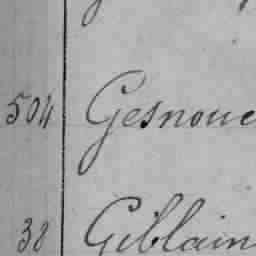 504 Gesnoue
38 Giblain